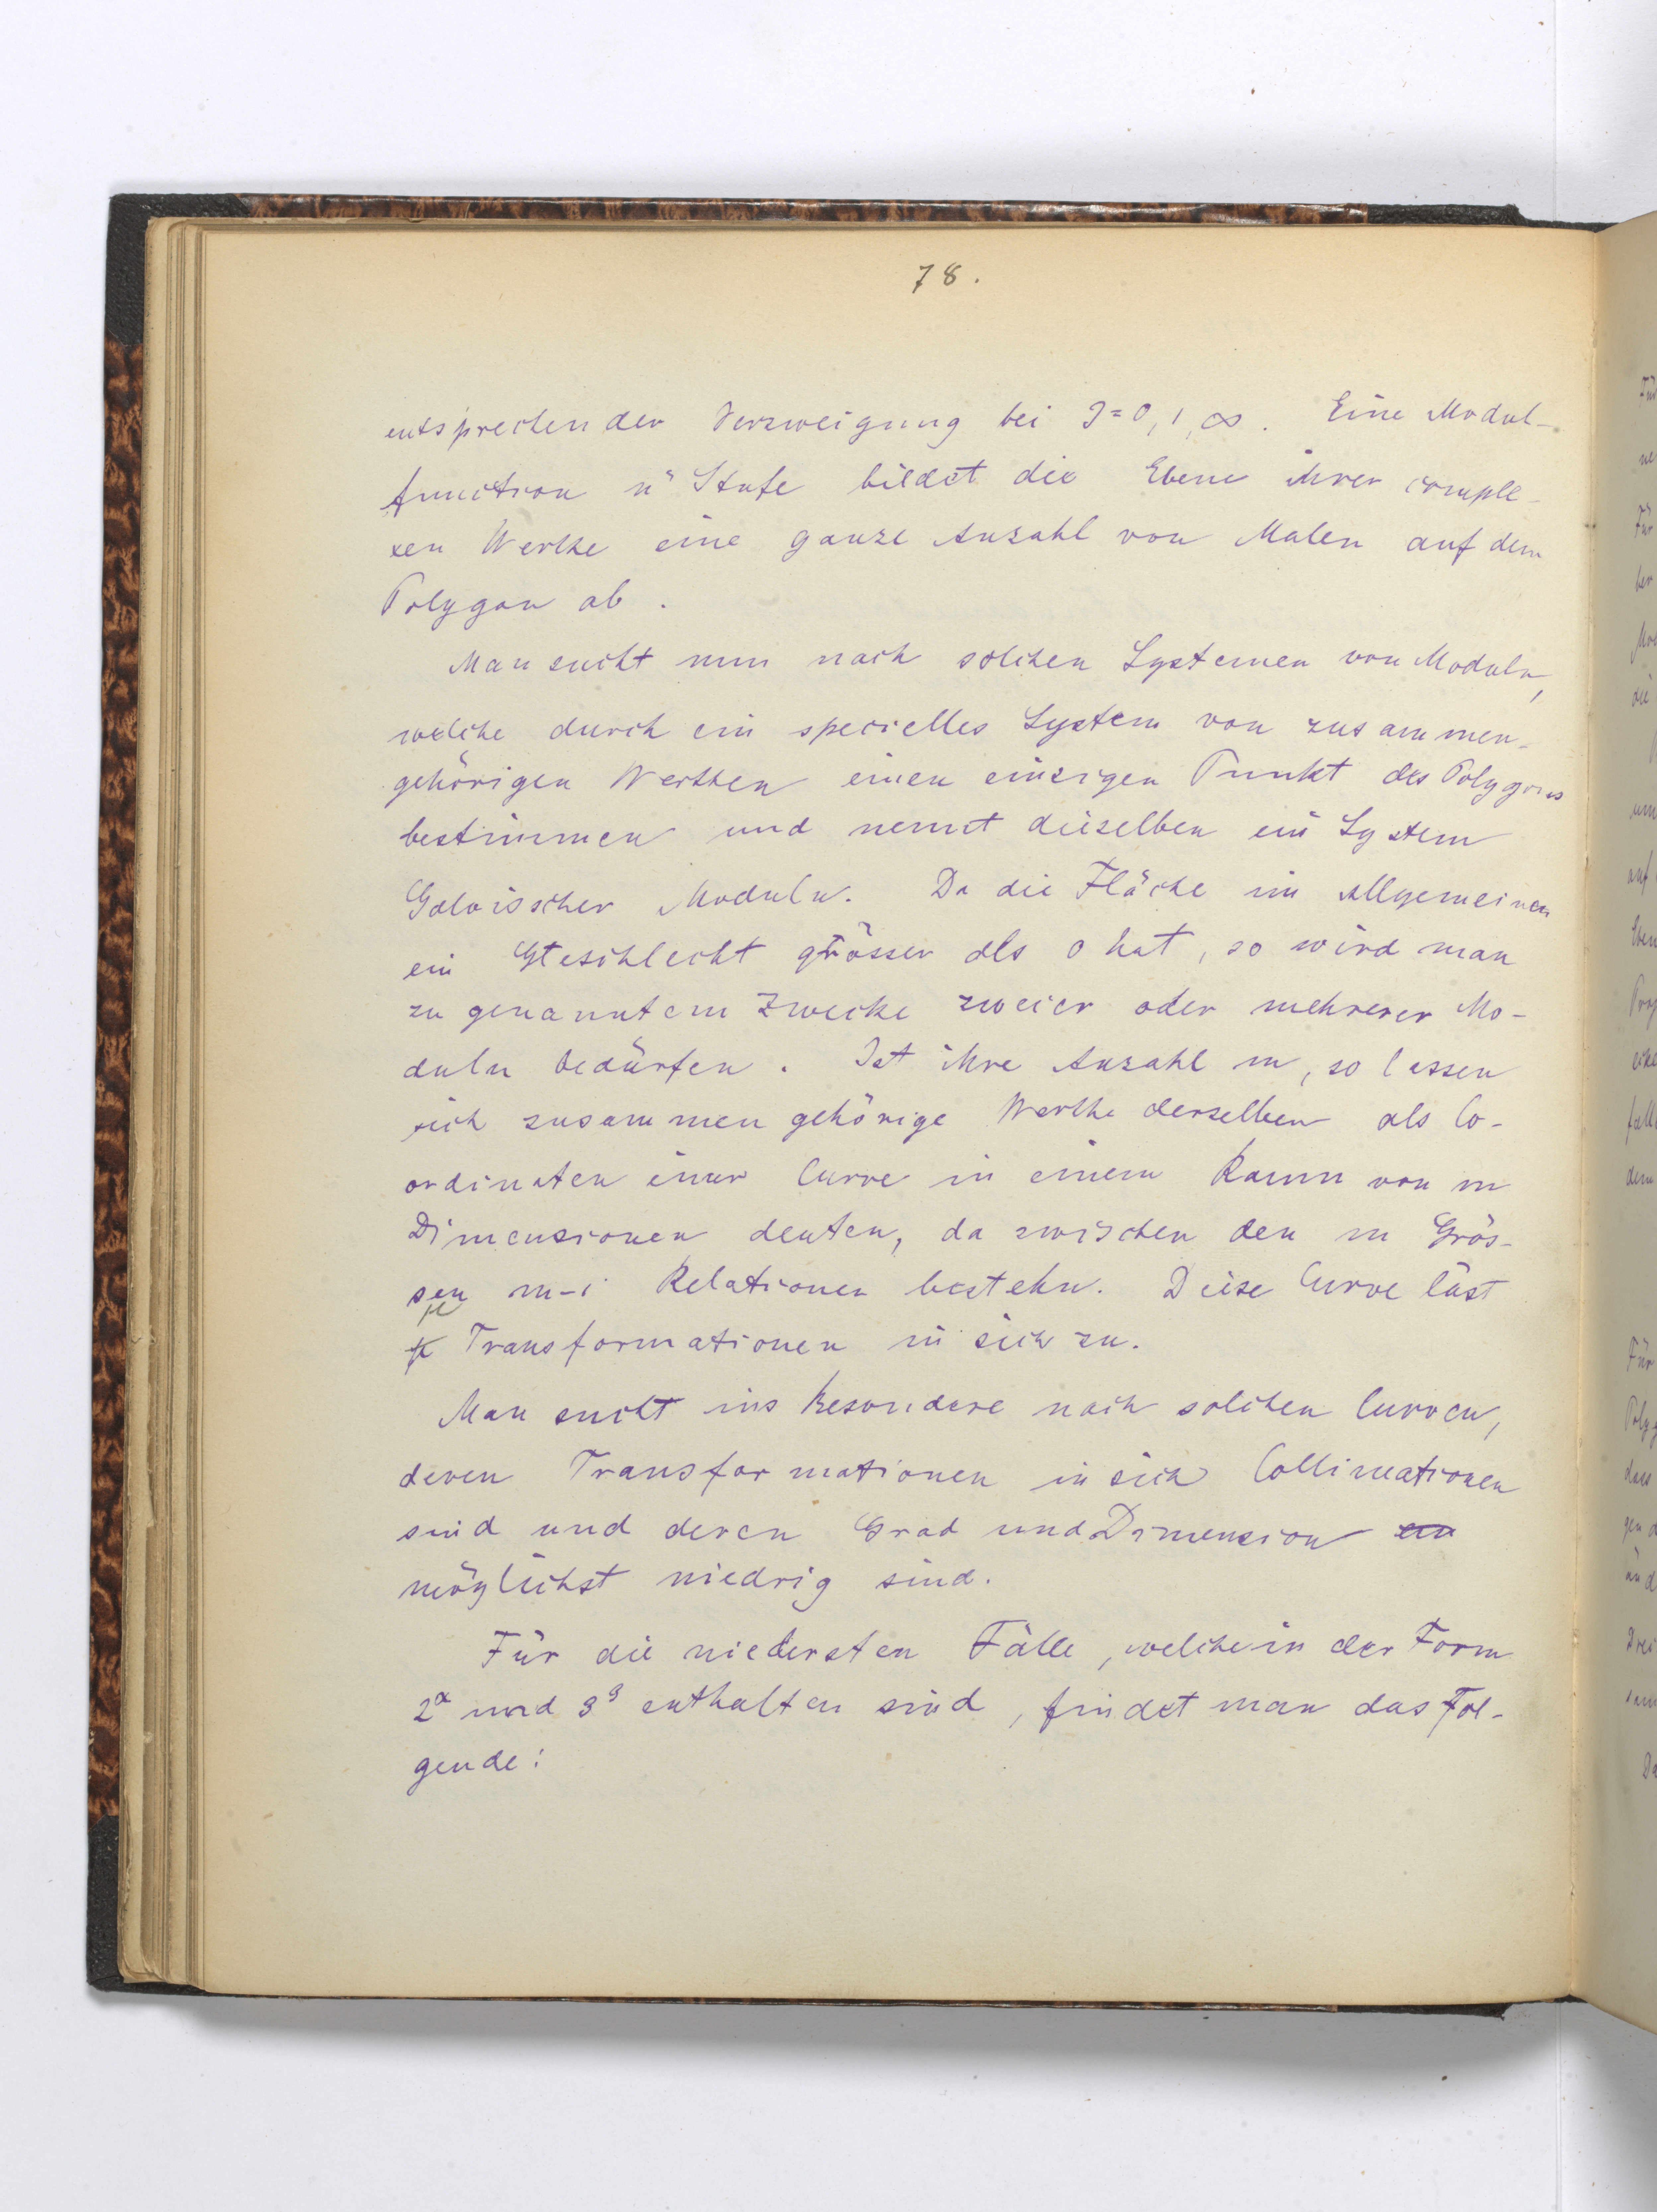 78.
entsprechender Verzweigung bei J=0,1,∞. Eine Modul-
function n<sup>r</sup> Stufe bildet die Ebene ihrer comple-
xen Werthe eine ganze Anzahl von Malen auf dem
Polygon ab.
Man sucht nun nach solchen Systemen von Moduln,
welche durch ein specielles System von zusammen-
gehörigen Werthen einen einzigen Punkt des Polygons
bestimmen und nennt dieselben ein System
Galoisscher Moduln. Da die Fläche im Allgemeinen
ein Geschlecht grösser als 0 hat, so wird man
zu genanntem Zwecke zweier oder mehrerer Mo-
duln bedürfen. Ist ihre Anzahl m, so lassen
sich zusammengehörige Werthe derselben als Co-
ordinaten einer Curve in einem Raum von m
Dimensionen deuten, da zwischen den m Grös-
sen m-1 Relationen bestehn. Diese Curve läst
μ Transformationen in sich zu.
Man sucht ins Besondere nach solchen Curven,
deren Transformationen in sich Collineationen
sind und deren Grad und Dimension
möglichst niedrig sind.
Für die niedersten Fälle, welche in der Form
2^α und 3^β enthalten sind, findet man das Fol-
gende: